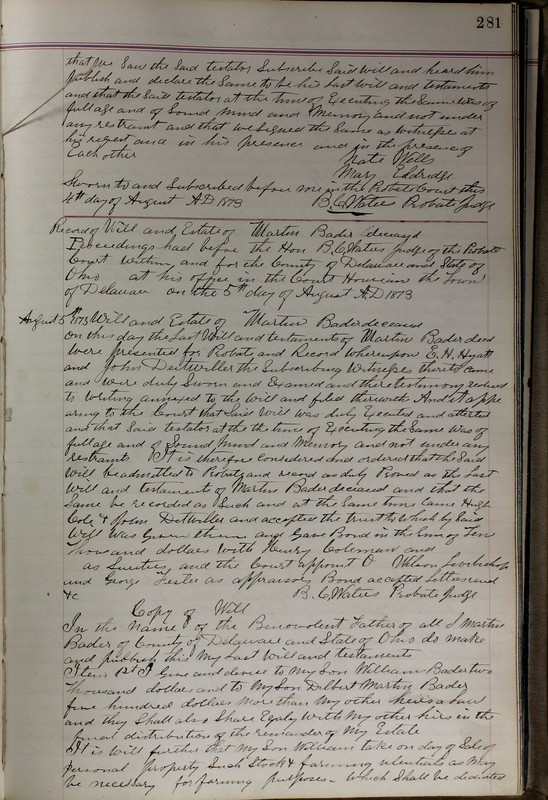 281
that we Saw the Said testator Subscribe Said Will and heard him
publish and declare the Same to be his last Will and testaments
and that the Said testator at the time of Executing the Same Was of
full age and of Sound mind and Memory and not under
any restraint and that we Signed the Same as Witnesses at
his request and in his presence and in the presence of
Each other Kate Wells
Mary Eldridge
Sworn to and Subscribed before me in the Probate Court this
4th day of August A.D 1873 B. C. Waters Probate Judge
Record of Will and Estate of Martin Bader deceasd
Proceedings had before the Hon B. C. Waters Judge of the Probate
Court Within and for the County of Delaware and State of
Ohio at his office in the Court House in the Town
of Delaware on the 5th day of August A.D 1873
August 5th 1873 Will and Estate of Martin Bader deceased
On this day the Last Will and testaments of Martin Bader decd
Were presented for Probate and Record Whereupon E. H. Hyatt
and John Detwiller the Subscribing Witnesses thereto came
and Were duly Sworn and Examed and there testamony reduced
to Writing annexed to the Will and filed therewith And it appe
aring to the Court that Said Will was duly Executed and attested
and that Said testator at the the time of Executing the Same Was of
full age and of Sound Mind and Memory and not under any
restraints It is therefore Considered and ordered that the Said
Will be admitted to Probate and record as duly Proved as the Last
Will and testament of Martin Bader deceased and that the
Same be recorded as Such and at the Same time Came Hugh
Cole & John Detwiller and accepted the trust to Which by Said
Will Was Given them and Gave Bond in the Sum of Ten
Thousand dollars With Henry Coleman and
as Sureties and the Court appoint O Wilson
and George as appraisors Bond accepted Letters issued
&c B. C. Waters Probate Judge
Copy of Will
In the Name of the Benevolent Father of all I Martin
Bader of County of Delaware and State of Ohio do make
and publish this My Last Will and testaments
Item 1st I Give and devise to My Son William Bader two
Thousand dollars and to My Son Delbert Martin Bader
five hundred dollars More than My other heirs
and they Shall also Share Egaly With My other hirs in the
final distribution of the remainder of My Estate
It is Will further that My Son William take on day of Sale of
Personal property Such Stock & farming utentials as May
be necessary for farming purposes - Which Shall be dedicated